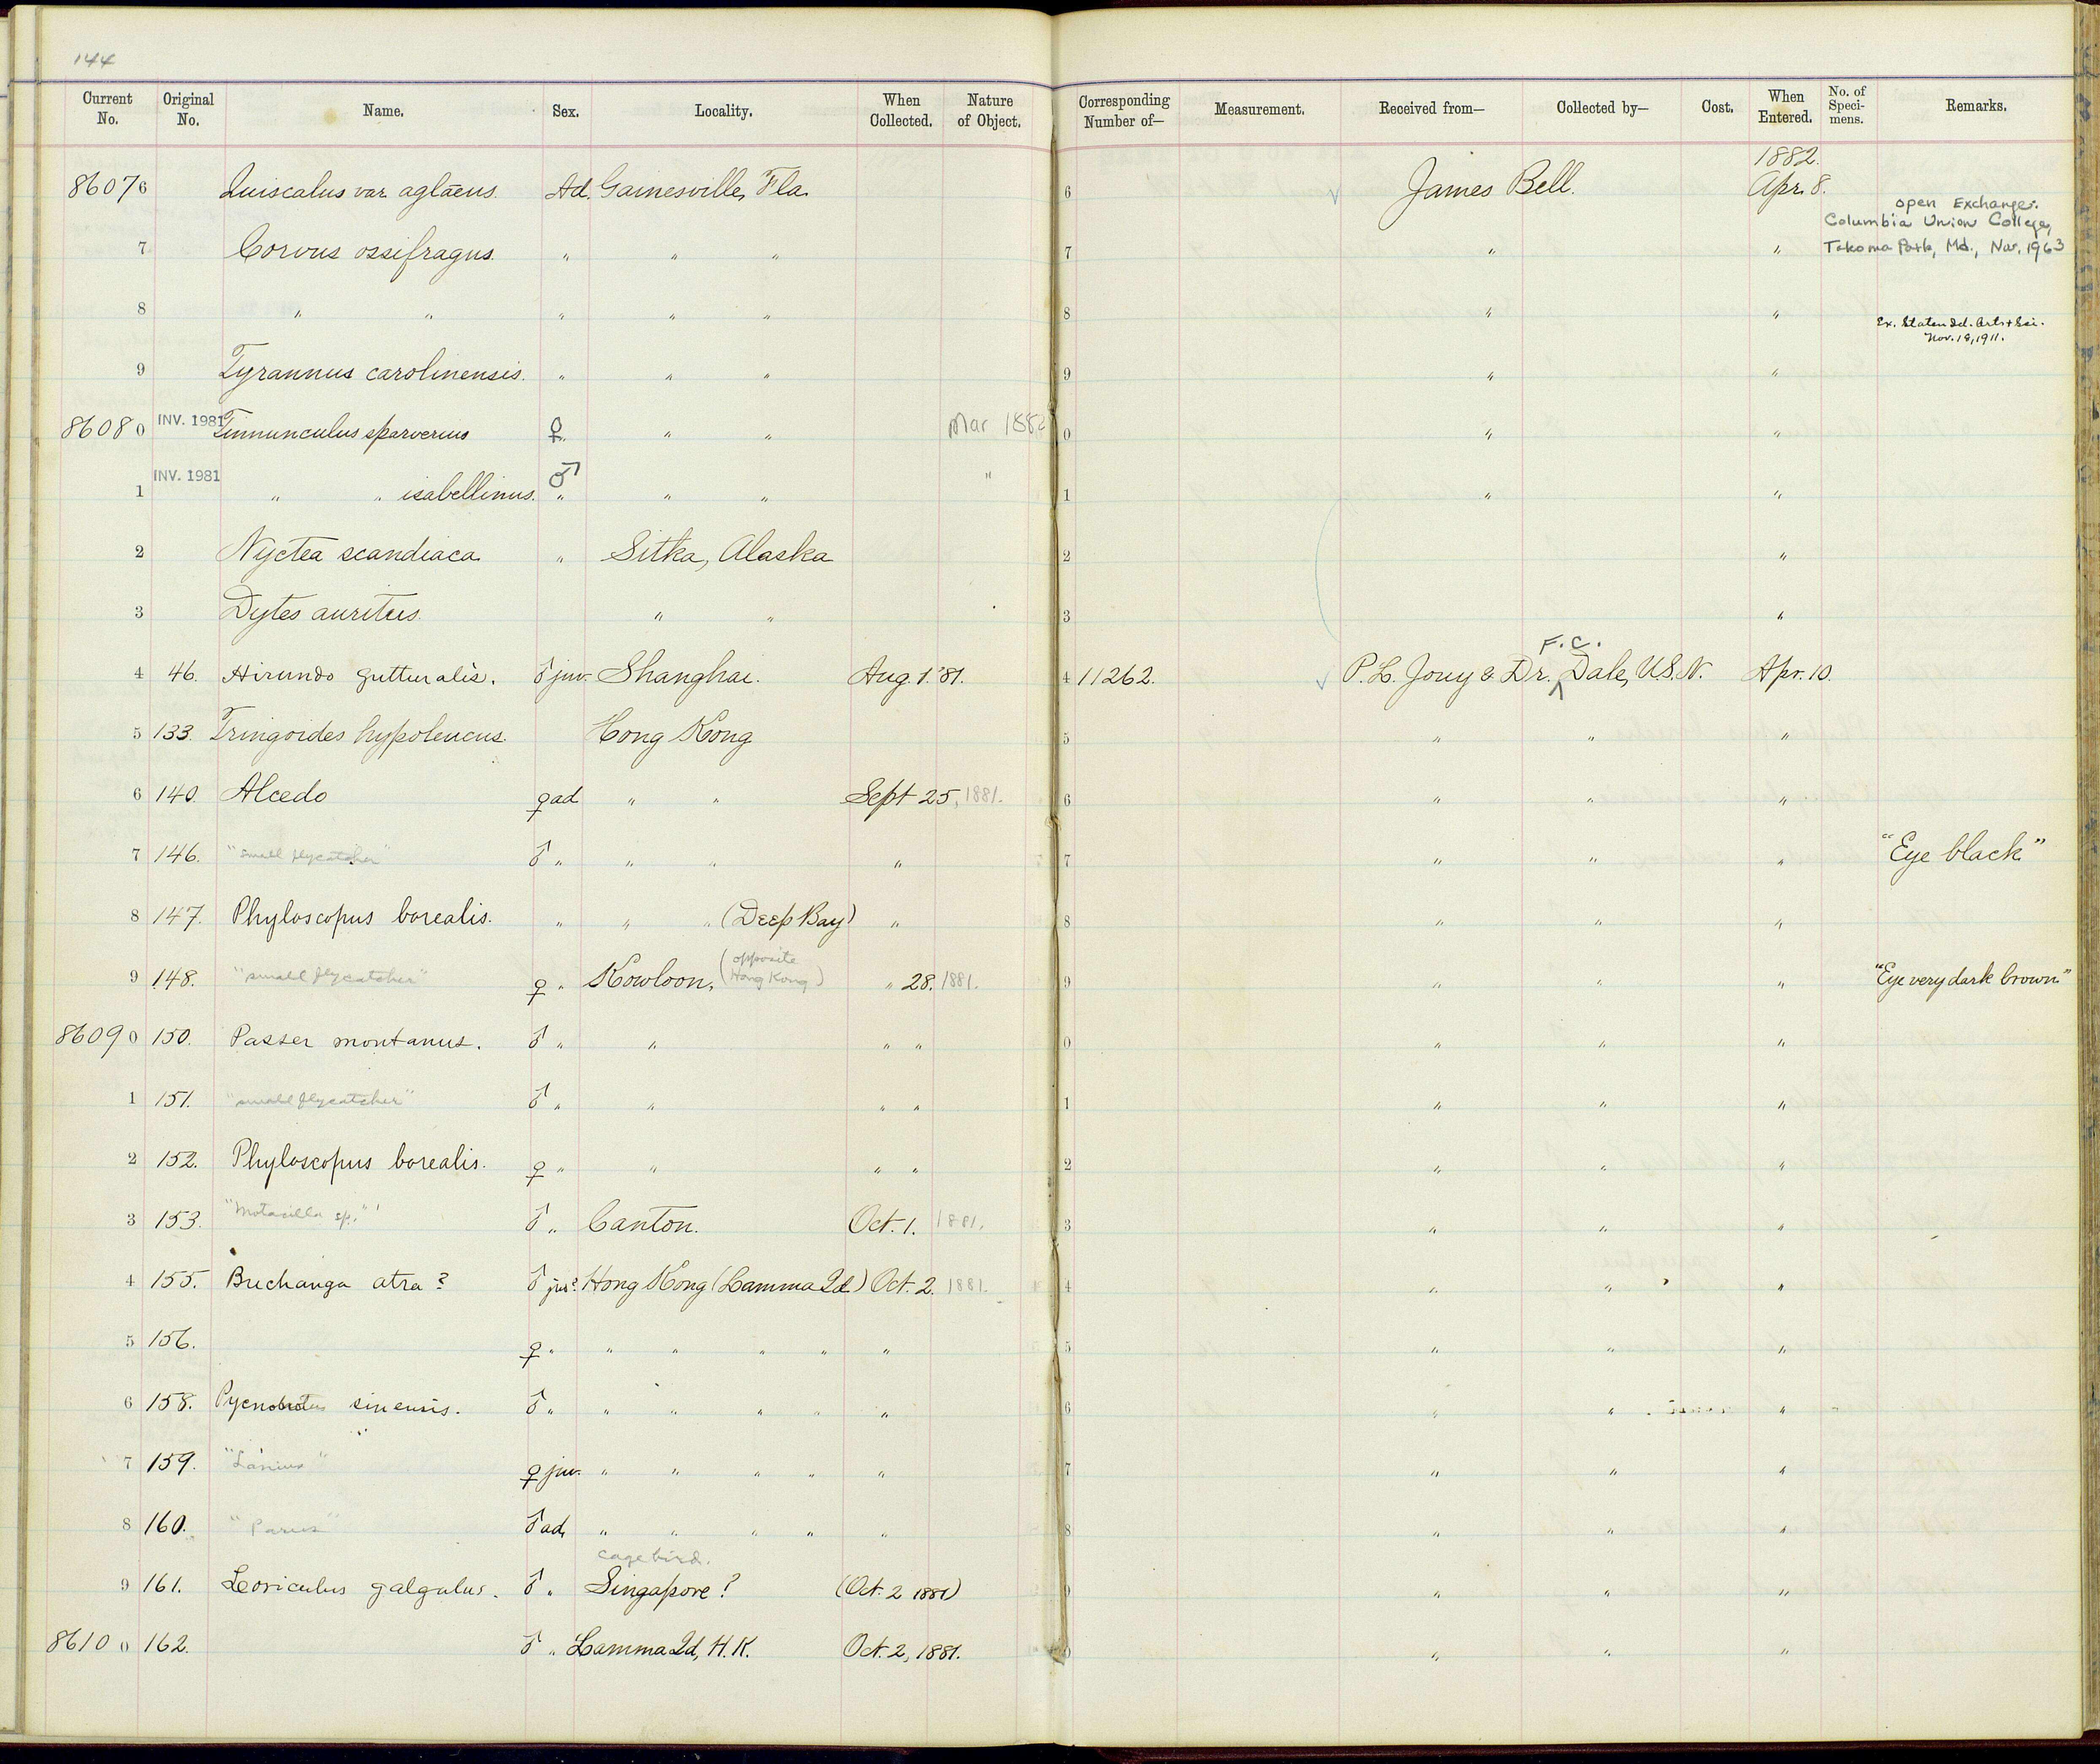 144
Current No. Original No. Name. Sex. Locality. When Collected. Nature of Object. Corresponding Number of— Measurement. Received from— Collected by— Cost. When Entered. No. of Speci-mens. Remarks.
1882.
86076 Quiscalus var. aglaeus. Ad. Gainesville, Fla. 6 √ James Bell. Apr. 8.
open Exchange:
Columbia Union College,
7 Corvus ossifragus. " " " 7 " " Takoma Park, Md., Nov. 1963
8 " " " " " 8 " " Ex. Staten Id. Arts + Sci.
Nov. 18, 1911.
9 Tyrannus carolinensis. " " " 9 " "
86080 INV. 1981 Tinnunculus sparverius ♀ " " " Mar 1882 0 " "
1 INV. 1981 " " isabellinus. ♂ " " " " 1 " "
2 Nyctea scandiaca " Sitka, Alaska 2 "
3 Dytes auritus. " " 3 "
F.C.
4 46. Hirundo gutturalis. ♂ juv. Shanghai. Aug. 1. '81. 4 11262. √ P. L. Jouy & Dr. ^ Dale, U.S.N. Apr. 10.
5 133. Tringoides hypoleucus. Hong Kong 5 " " "
6 140. Alcedo ♀ ad " " Sept 25, 1881. 6 " " "
7 146. "small flycatcher" ♂ " " " " 7 " " " "Eye black"
8 147. Phyloscopus borealis. " " " (Deep Bay) " 8 " " "
9 148. "small flycatcher" ♀ " Kowloon, (opposite Hong Kong) " 28. 1881. 9 " " " "Eye very dark brown."
86090 150. Passer montanus. ♂ " " " " 0 " " "
1 151. "small flycatcher" ♂ " " " " 1 " " "
2 152. Phyloscopus borealis. ♀ " " " " 2 " " "
3 153. "Motacilla sp." ♂ " Canton. Oct. 1. 1881. 3 " " "
4 155. Buchanga atra? ♂ juv? Hong Kong (Lamma Id.) Oct. 2. 1881. 4 " " "
5 156. ♀ " " " " " " 5 " " "
6 158. Pycnonotus sinensis. ♂ " " " " " " 6 " " "
7 159. "Lanius" ♀ juv. " " " " " 7 " " "
8 160. "Parus" ♂ ad. " " " " " 8 " " "
cage bird.
9 161. Loriculus galgulus. ♂ " Singapore? (Oct. 2 1881) 9 " " "
86100 162. ♂ " Lamma Id, H.K. Oct. 2, 1881. 0 " " "